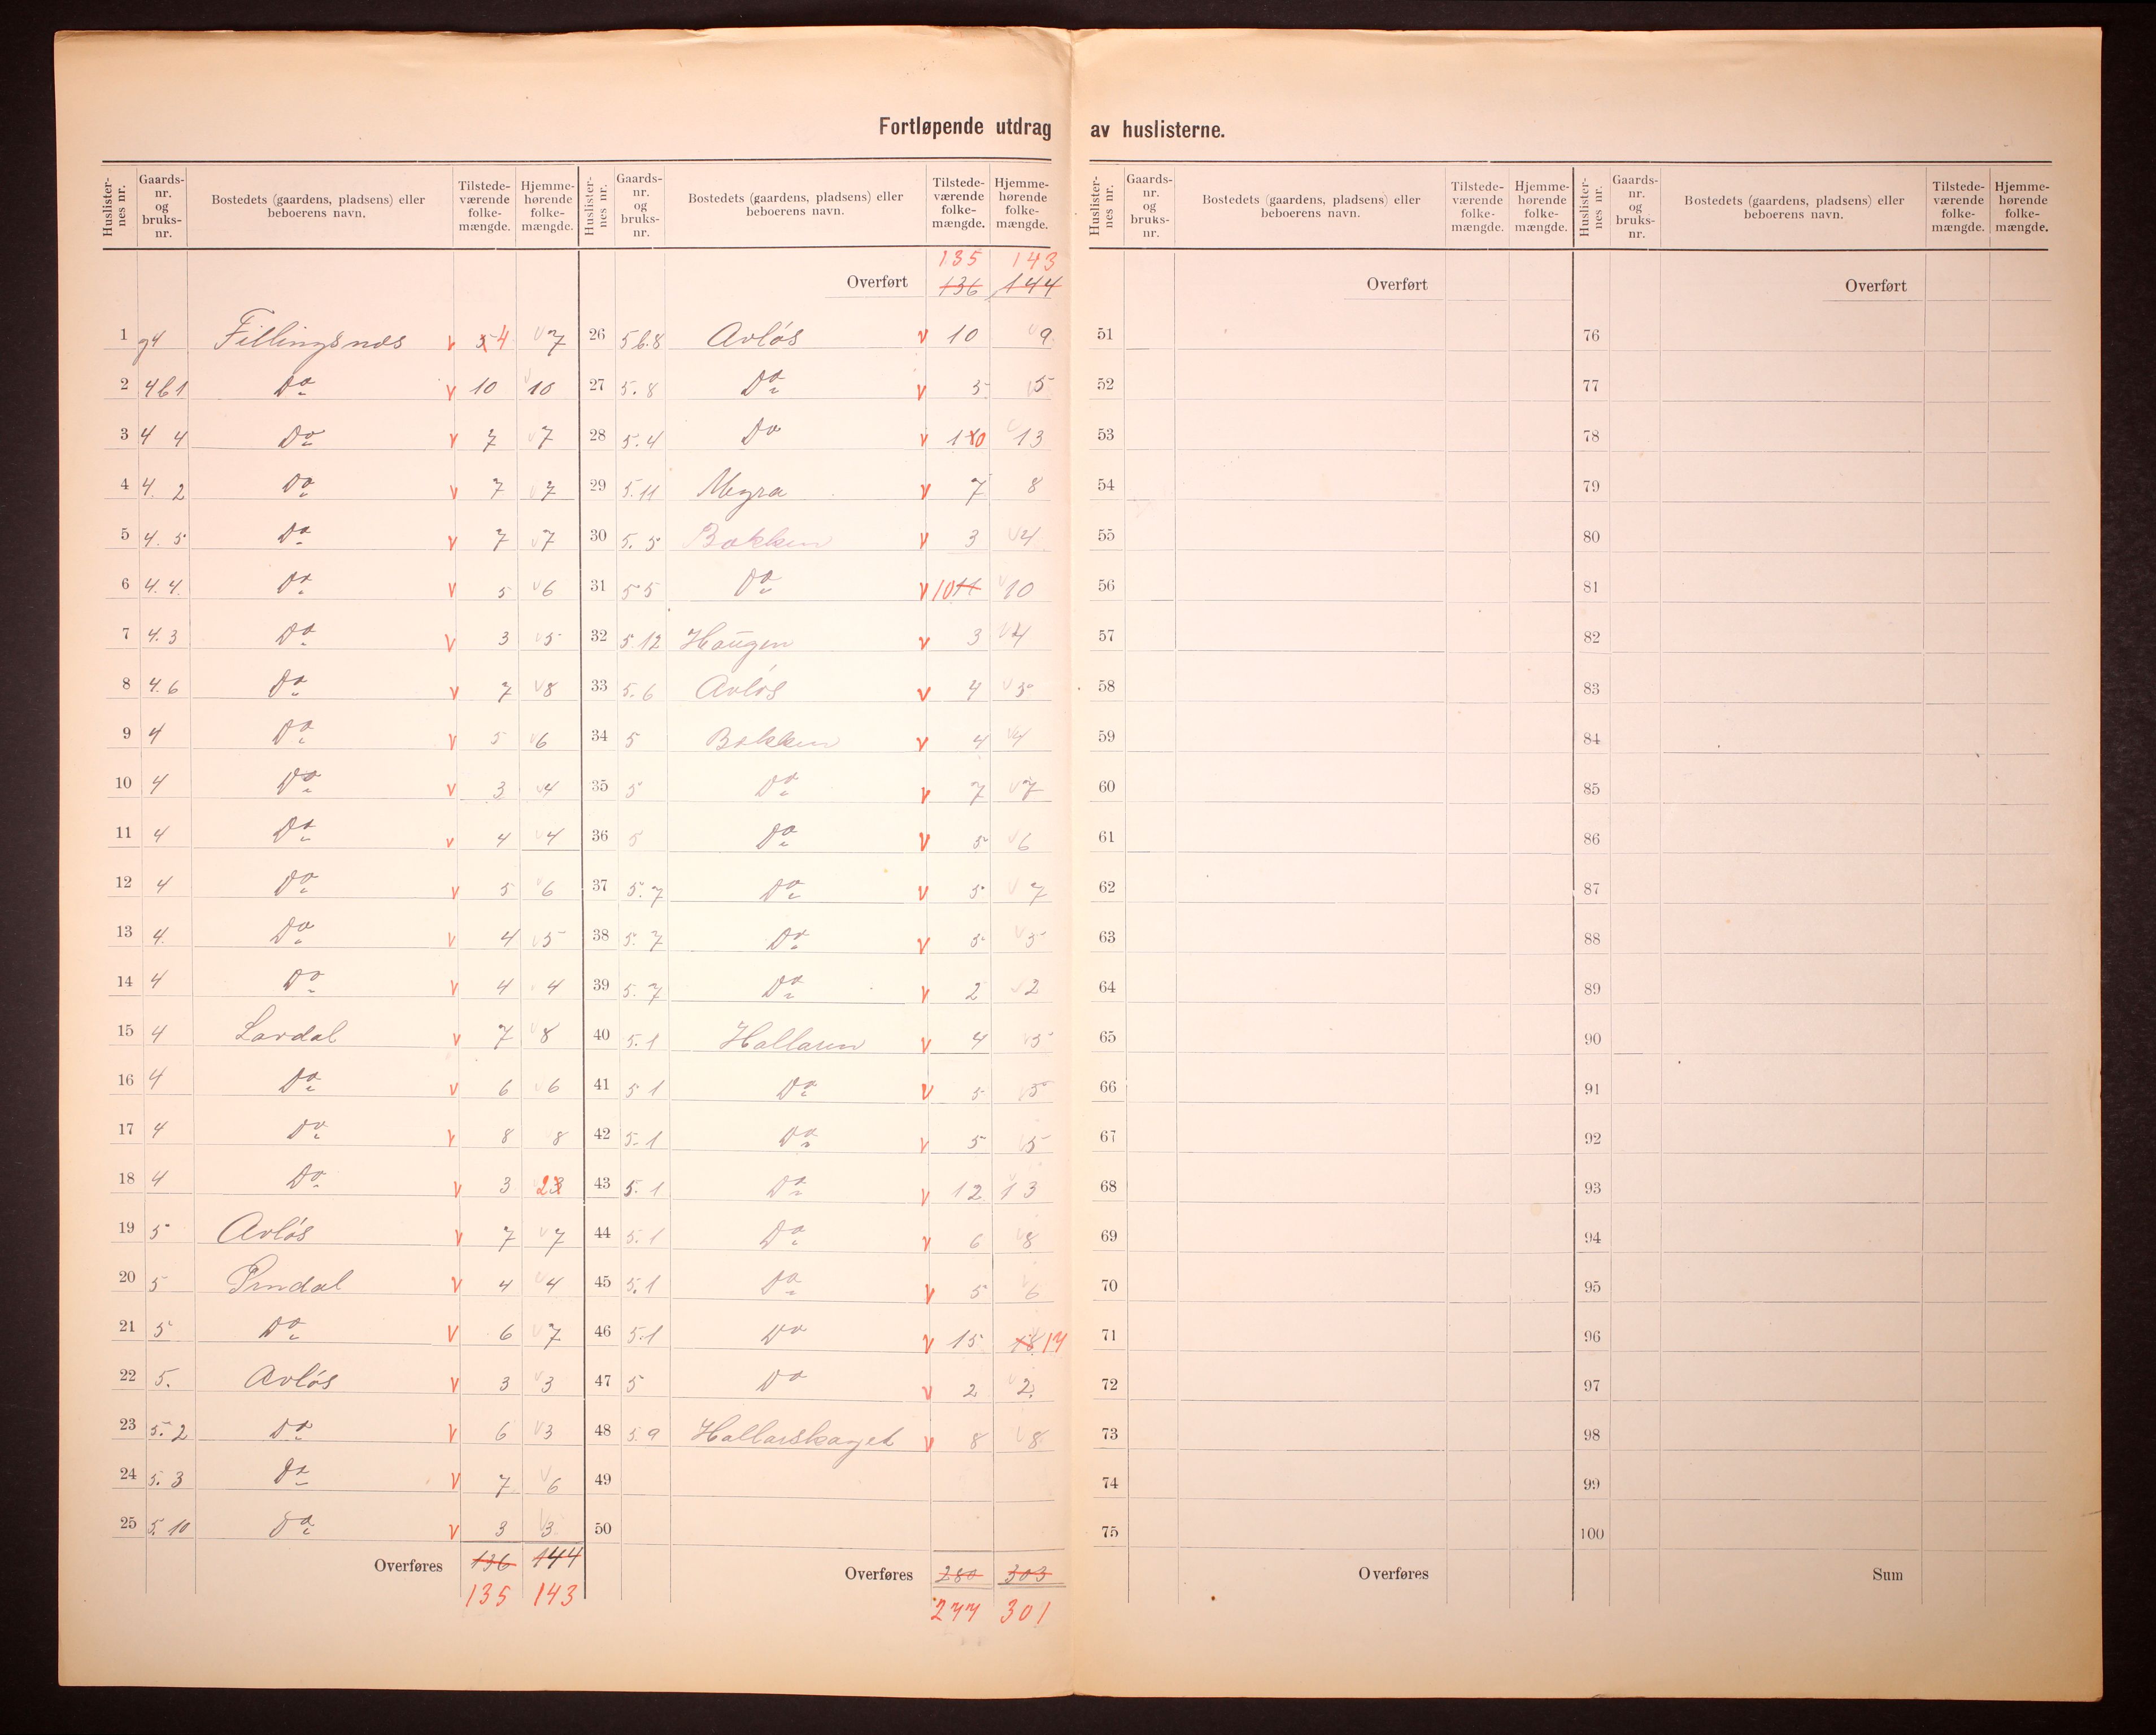 Fortløpende utdrag av huslisterne.
Huslister-nes nr. Gaards-nr. og bruks-nr. Bostedets (gaardens, pladsens) eller beboerens navn. Tilstede-værende folke-mængde. Hjemme-hørende folke-mængde.
1 g4 Fillingsnes v 5 4 v 7
2 4 b 1 Do v 10 v 10
3 4 4 Do v 7 v 7
4 4. 2 Do v 7 v 7
5 4. 5 Do v 7 v 7
6 4. 4. Do v 5 v 6
7 4. 3 Do v 3 v 5
8 4. 6 Do v 7 v 8
9 4 Do v 5 v 6
10 4 Do v 3 v 4
11 4 Do v 4 v 4
12 4 Do v 5 v 6
13 4. Do v 4 v 5
14 4 Do v 4 4
15 4 Lardal v 7 v 8
16 4 Do v 6 v 6
17 4 Do v 8 v 8
18 4 Do v 3 2 3
19 5 Avløs v 7 v 7
20 5 v 4 v 4
21 5 Do v 6 v 7
22 5. Avløs v 3 v 3
23 5. 2 Do v 6 v 3
24 5. 3 Do v 7 v 6
25 5. 10 Do v 3 v 3
Overføres 136 144
135 143
Huslister-nes nr. Gaards-nr. og bruks-nr. Bostedets (gaardens, pladsens) eller beboerens navn. Tilstede-værende folke-mængde. Hjemme-hørende folke-mængde.
135 143
Overført 136 144
26 5 b. 8 Avløs v 10 v 9
27 5. 8 Do v 5 v 5
28 5. 4 Do v 10 v 13
29 5. 11 Myra v 7 8
30 5. 5 Bakken v 3 v 4
31 5 5 Do v 10 11 v 10
32 5. 12 Haugen v 3 v 4
33 5. 6 Avløs v 4 v 5
34 5 Bakken v 4 v 4
35 5 Do v 7 v 7
36 5 Do v 5 v 6
37 5. 7 Do v 5 v 7
38 5. 7 Do v 5 v 5
39 5. 7 Do v 2 v 2
40 5. 1 Hallaren v 4 v 5
41 5 1 Do v 5 v 5
42 5. 1 Do v 5 v 5
43 5. 1 Do v 12 13
44 5. 1 Do v 6 v 8
45 5. 1 Do v 5 6
46 5. 1 Do v 15 18 17
47 5 Do v 2 v 2
48 5. 9 v 8 v 8
49
50
Overføres 280 303
277 301
Huslister-nes nr. Gaards-nr. og bruks-nr. Bostedets (gaardens, pladsens) eller beboerens navn. Tilstede-værende folke-mængde. Hjemme-hørende folke-mængde.
Overført
51
52
53
54
55
56
57
58
59
60
61
62
63
64
65
66
67
68
69
70
71
72
73
74
75
Overføres
Huslister-nes nr. Gaards-nr. og bruks-nr. Bostedets (gaardens, pladsens) eller beboerens navn. Tilstede-værende folke-mængde. Hjemme-hørende folke-mængde.
Overført
76
77
78
79
80
81
82
83
84
85
86
87
88
89
90
91
92
93
94
95
96
97
98
99
100
Sum